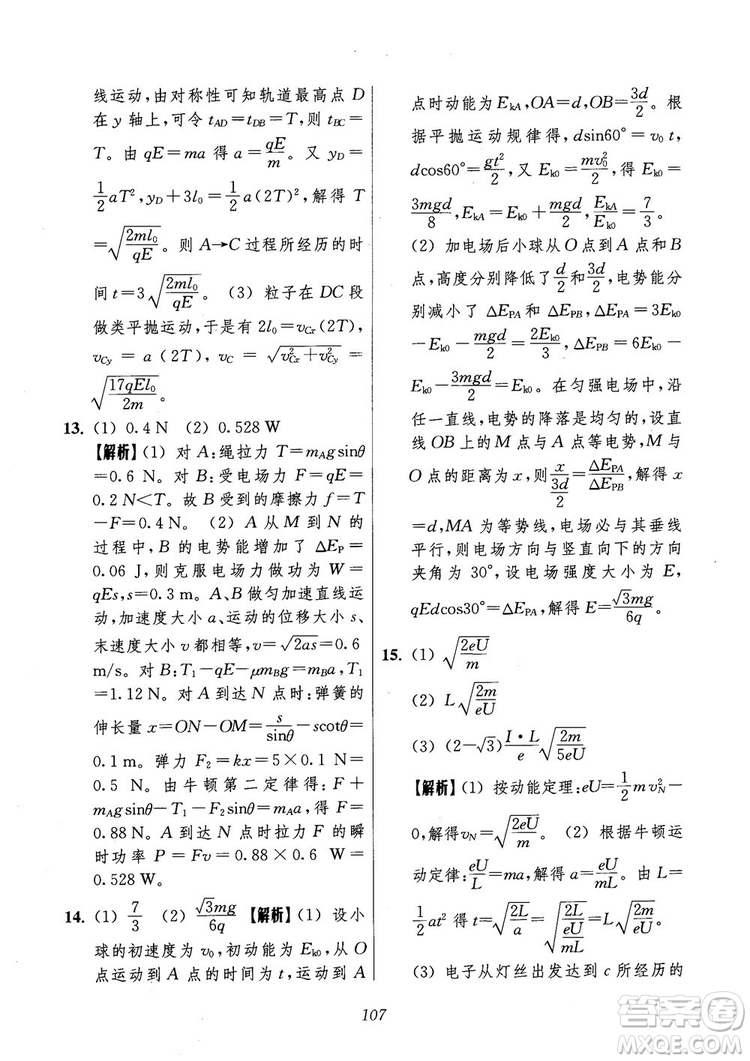 线运动，由对称性可知轨道最高点 D
在 y 轴上，可令 t_{AD}=t_{DB}=T，则 t_{BC}=
T。由 qE=ma 得 a=\frac{qE}{m}。又 y_D=
\frac{1}{2}aT^2，y_D+3l_0=\frac{1}{2}a(2T)^2，解得 T
=\sqrt{\frac{2ml_0}{qE}}。则 A→C 过程所经历的时
间 t=3\sqrt{\frac{2ml_0}{qE}}。(3) 粒子在 DC 段
做类平抛运动，于是有 2l_0=v_{Cx}(2T)，
v_{Cy}=a(2T)，v_C=\sqrt{v_{Cx}^2+v_{Cy}^2}=
\sqrt{\frac{17qEl_0}{2m}}。
13. (1) 0.4 N (2) 0.528 W
【解析】(1) 对 A:绳拉力 T=m_Agsinθ
=0.6 N。对 B:受电场力 F=qE=
0.2 N<T。故 B 受到的摩擦力 f=T
-F=0.4 N。(2) A 从 M 到 N 的
过程中，B 的电势能增加了 ΔE_P=
0.06 J，则克服电场力做功为 W=
qEs，s=0.3 m。A、B 做匀加速直线运
动，加速度大小 a、运动的位移大小 s、
末速度大小 v 都相等，v=\sqrt{2as}=0.6
m/s。对 B:T_1-qE-μm_Bg=m_Ba，T_1
=1.12 N。对 A 到达 N 点时:弹簧的
伸长量 x=ON-OM=\frac{s}{sinθ}-scotθ=
0.1 m。弹力 F_2=kx=5×0.1 N=
0.5 N。由牛顿第二定律得:F+
m_Agsinθ-T_1-F_2sinθ=m_Aa，得 F=
0.88 N。A 到达 N 点时拉力 F 的瞬
时功率 P=Fv=0.88×0.6 W=
0.528 W。
14. (1) \frac{7}{3} (2) \frac{\sqrt{3}mg}{6q} 【解析】(1) 设小
球的初速度为 v_0，初动能为 E_{k0}，从 O
点运动到 A 点的时间为 t，运动到 A
点时动能为 E_{kA}，OA=d，OB=\frac{3d}{2}。根
据平抛运动规律得，dsin60°=v_0t，
dcos60°=\frac{gt^2}{2}，E_{k0}=\frac{mv_0^2}{2}，解得 E_{k0}=
\frac{3mgd}{8}，E_{kA}=E_{k0}+\frac{mgd}{2}，\frac{E_{kA}}{E_{k0}}=\frac{7}{3}。
(2) 加电场后小球从 O 点到 A 点和 B
点，高度分别降低了 \frac{d}{2} 和 \frac{3d}{2}，电势能分
别减小了 ΔE_{PA} 和 ΔE_{PB}，ΔE_{PA}=3E_{k0}
-E_{k0}-\frac{mgd}{2}=\frac{2E_{k0}}{3}，ΔE_{PB}=6E_{k0}-
E_{k0}-\frac{3mgd}{2}=E_{k0}。在匀强电场中，沿
任一直线，电势的降落是均匀的，设直
线 OB 上的 M 点与 A 点等电势，M 与
O 点的距离为 x，则 \frac{x}{\frac{3d}{2}}=\frac{ΔE_{PA}}{ΔE_{PB}}，解得 x
=d，MA 为等势线，电场必与其垂线
平行，前电场方向与竖直向下的方向
夹角为 30°，设电场强度大小为 E，
qEdcos30°=ΔE_{PA}，解得 E=\frac{\sqrt{3}mg}{6q}。
15. (1) \sqrt{\frac{2eU}{m}}
(2) L\sqrt{\frac{2m}{eU}}
(3) (2-\sqrt{3})\frac{I·L}{e}\sqrt{\frac{2m}{5eU}}
【解析】(1) 按动能定理:eU=\frac{1}{2}mv_N^2-
0，解得 v_N=\sqrt{\frac{2eU}{m}}。(2) 根据牛顿运
动定律:\frac{eU}{L}=ma，解得 a=\frac{eU}{mL}。由 L=
\frac{1}{2}at^2 得 t=\sqrt{\frac{2L}{a}}=\sqrt{\frac{2L}{\frac{eU}{mL}}}=L\sqrt{\frac{2m}{eU}}。
(3) 电子从灯丝出发达到 c 所经历的
107
答案圈
MXQE.COM